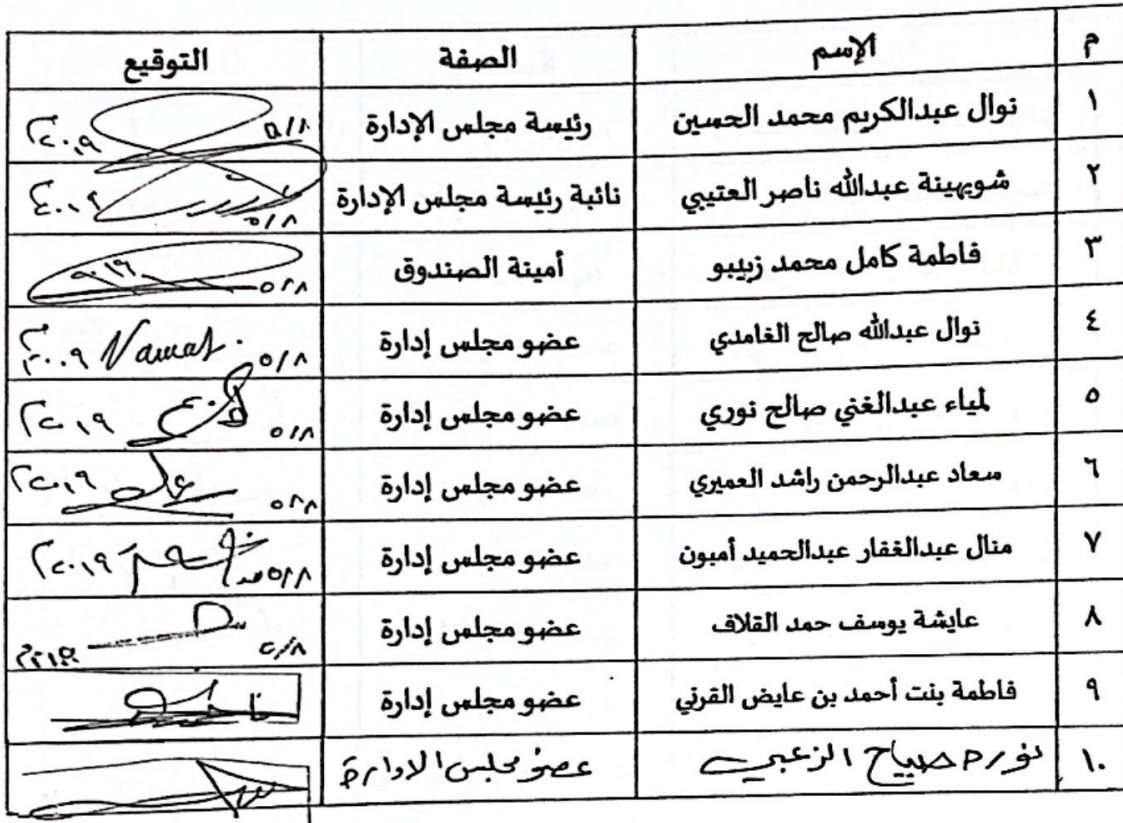 م الإسم الصفة التوقيع
١ نوال عبدالكريم محمد الحسين رئيسة مجلس الإدارة ٥/٨ ٢٠١٩
٢ شويهينة عبدالله ناصر العتيبي نائبة رئيسة مجلس الإدارة ٥/٨
٣ فاطمة كامل محمد زبيبو أمينة الصندوق
٤ نوال عبدالله صالح الغامدي عضو مجلس إدارة ٥/٨ Nawal
٥ لمياء عبدالغني صالح نوري عضو مجلس إدارة ٥/٨ ٢٠١٩
٦ سعاد عبدالرحمن راشد العميري عضو مجلس إدارة ٢٠١٩
٧ منال عبدالغفار عبدالحميد أمبون عضو مجلس إدارة ٥/٨ ٢٠١٩
٨ عايشة يوسف حمد القلاف عضو مجلس إدارة
٩ فاطمة بنت أحمد بن عايض القرني عضو مجلس إدارة
١٠ نوره صياح الزعبي عضو مجلس الادارة